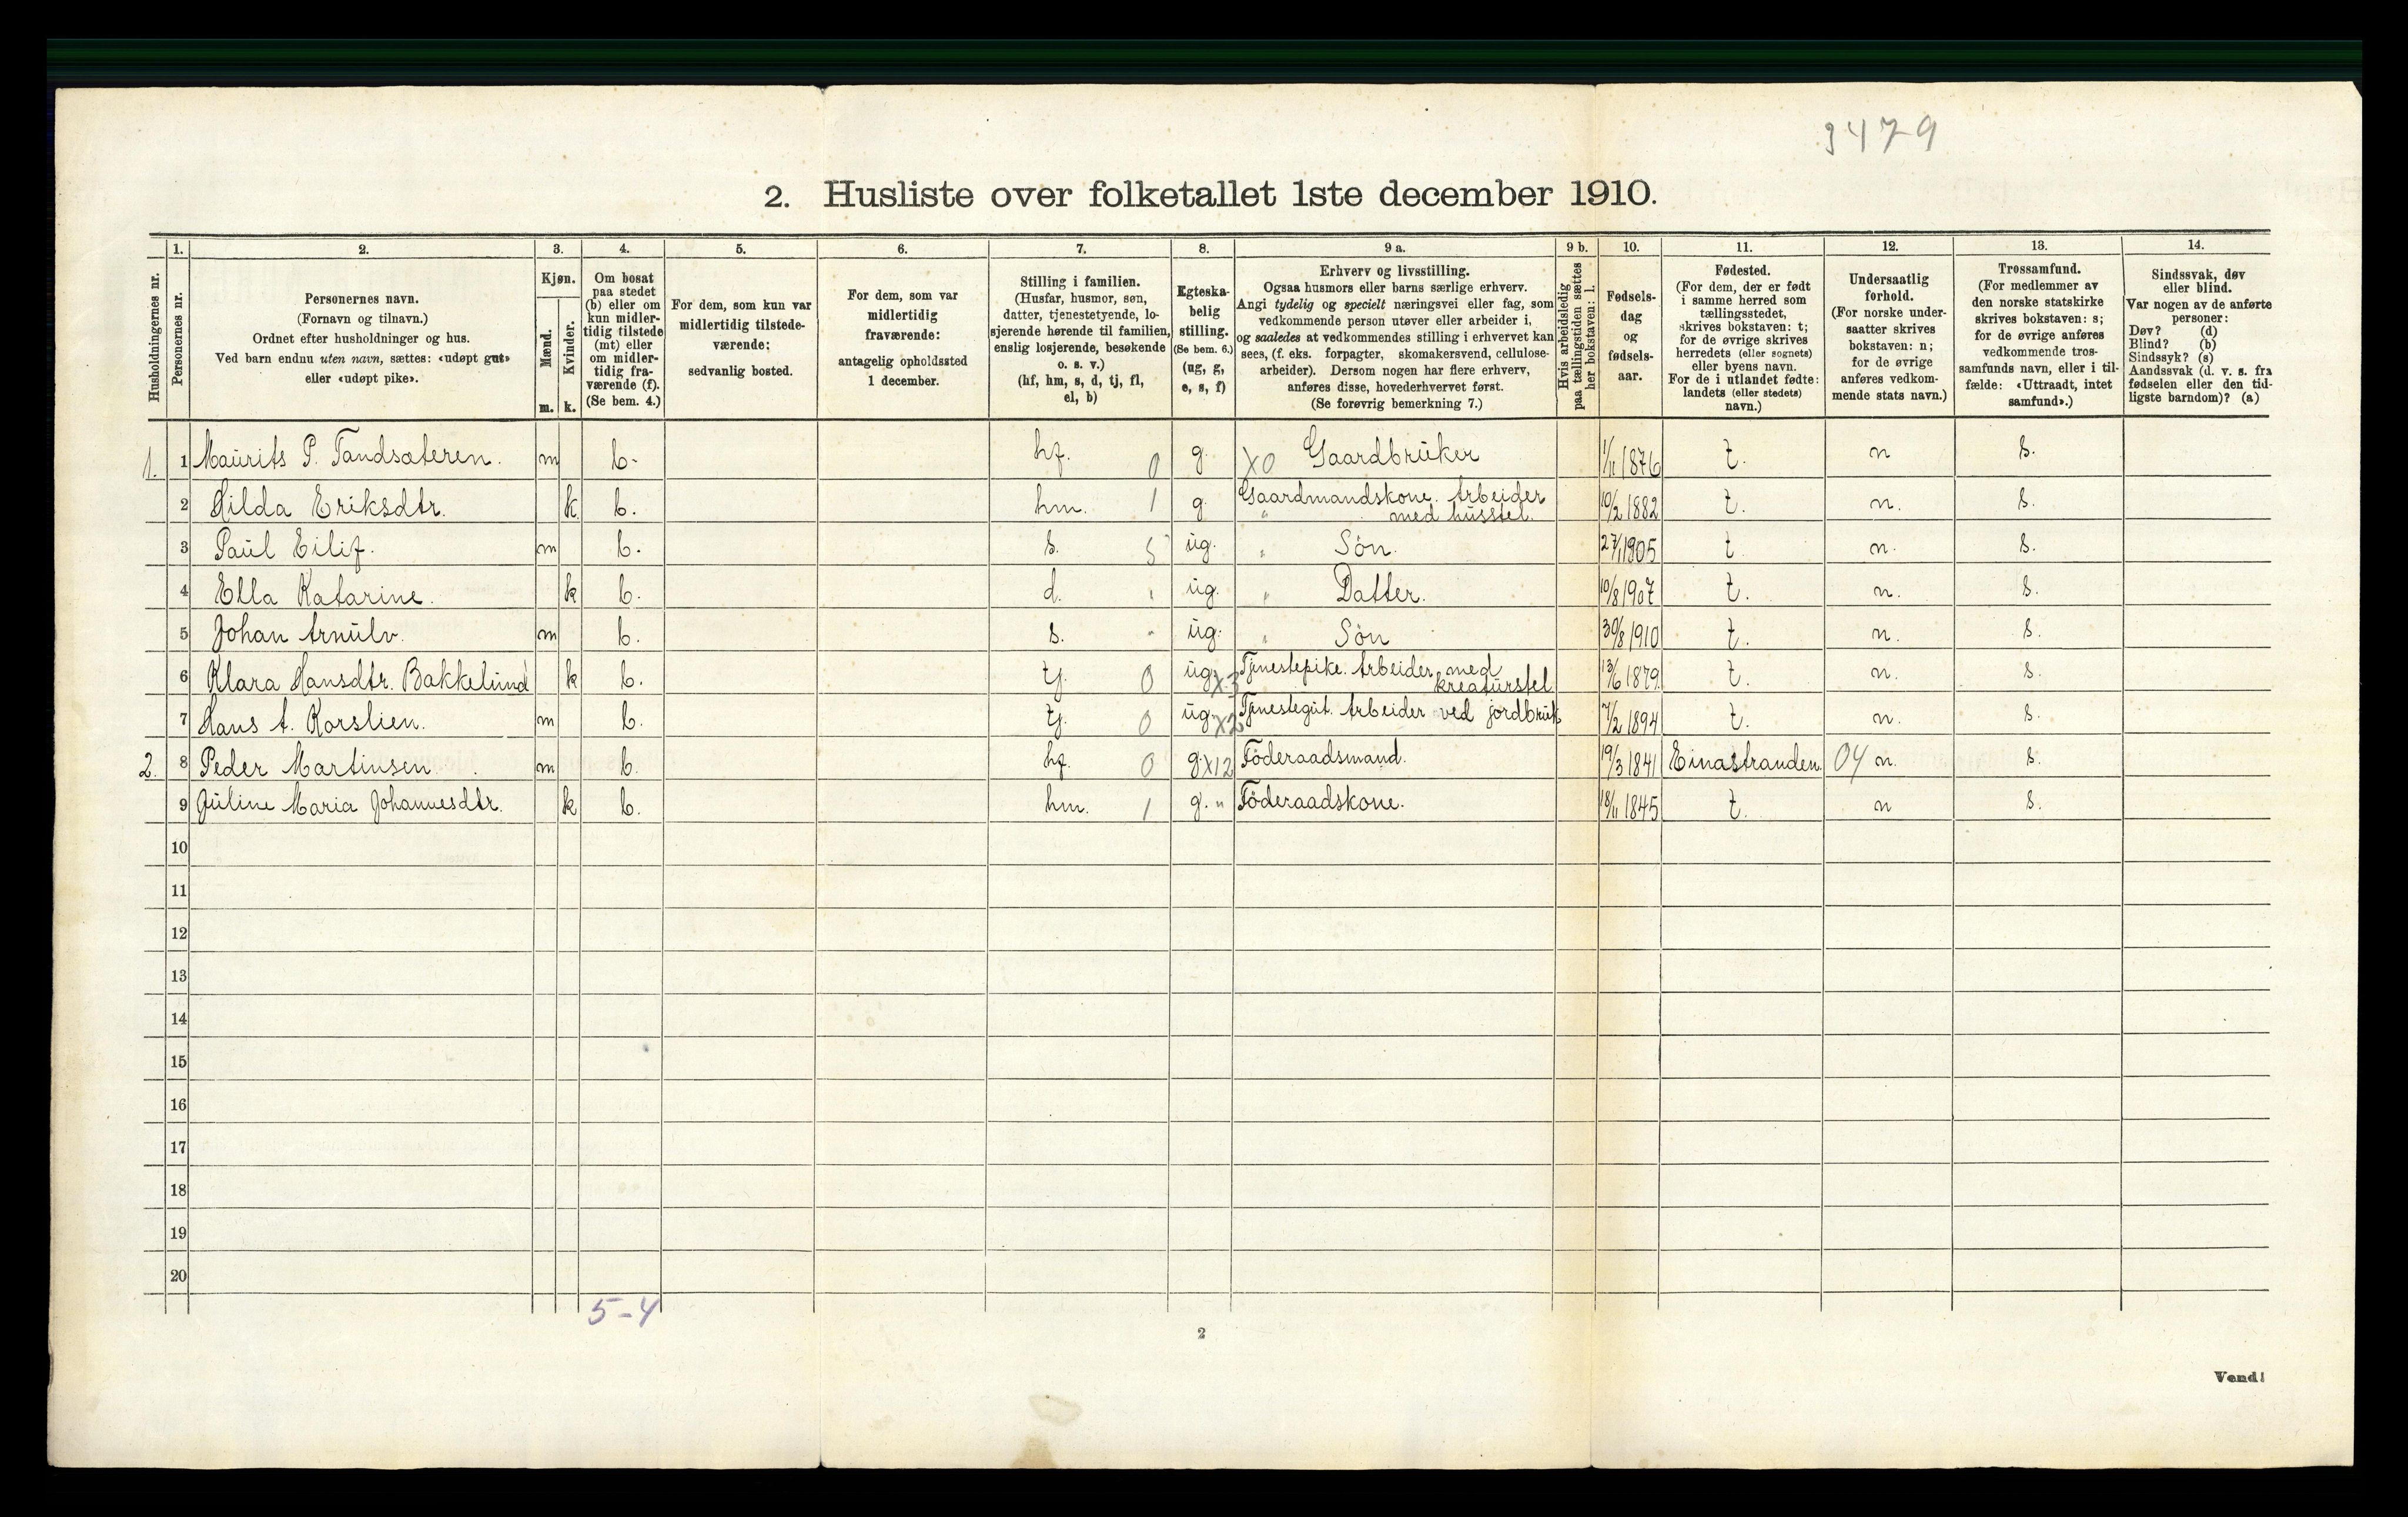 3479
2. Husliste over folketallet 1ste december 1910.
Husholdningernes nr.
1. Personernes nr.
2. Personernes navn.
(Fornavn og tilnavn.)
Ordnet efter husholdninger og hus.
Ved barn endnu uten navn, sættes: «udøpt gut»
eller «udøpt pike».
3. Kjøn.
Mænd. m.
Kvinder. k.
4. Om bosat
paa stedet
(b) eller om
kun midler-
tidig tilstede
(mt) eller
om midler-
tidig fra-
værende (f).
(Se bem. 4.)
5. For dem, som kun var
midlertidig tilstede-
værende:
sedvanlig bosted.
6. For dem, som var
midlertidig
fraværende:
antagelig opholdssted
1 december.
7. Stilling i familien.
(Husfar, husmor, søn,
datter, tjenestetyende, lo-
sjerende hørende til familien,
enslig losjerende, besøkende
o. s. v.)
(hf, hm, s, d, tj, fl,
el, b)
8. Egteska-
belig
stilling.
(Se bem. 6.)
(ug, g,
e, s, f)
9 a. Erhverv og livsstilling.
Ogsaa husmors eller barns særlige erhverv.
Angi tydelig og specielt næringsvei eller fag, som
vedkommende person utøver eller arbeider i,
og saaledes at vedkommendes stilling i erhvervet kan
sees, (f. eks. forpagter, skomakersvend, cellulose-
arbeider). Dersom nogen har flere erhverv,
anføres disse, hovederhvervet først.
(Se forøvrig bemerkning 7.)
9 b. Hvis arbeidsledig
paa tællingstiden sættes
her bokstaven: l.
10. Fødsels-
dag
og
fødsels-
aar.
11. Fødested.
(For dem, der er født
i samme herred som
tællingsstedet,
skrives bokstaven: t;
for de øvrige skrives
herredets (eller sognets)
eller byens navn.
For de i utlandet fødte:
landets (eller stedets)
navn.)
12. Undersaatlig
forhold.
(For norske under-
saatter skrives
bokstaven: n;
for de øvrige
anføres vedkom-
mende stats navn.)
13. Trossamfund.
(For medlemmer av
den norske statskirke
skrives bokstaven: s;
for de øvrige anføres
vedkommende tros-
samfunds navn, eller i til-
fælde: «Uttraadt, intet
samfund».)
14. Sindssvak, døv
eller blind.
Var nogen av de anførte
personer:
Døv? (d)
Blind? (b)
Sindssyk? (s)
Aandssvak (d. v. s. fra
fødselen eller den tid-
ligste barndom)? (a)
1. 1 Maurits P. Tandsæteren. m b. hf. 0 g. X0 Gaardbruker 1/11 1876 t. n s.
2 Hilda Eriksdtr. k b. hm. 1 g. Gaardmandskone. Arbeider
" med husstel. 10/2 1882 t. n. s.
3 Paul Eilif. m b. s. 5 ug. " Søn. 27/1 1905 t n. s.
4 Ella Katarine. k b. d. " ug. " Datter. 10/8 1907 t. n. s.
5 Johan Arnulv. m b. s. " ug. " Søn 30/8 1910 t. n. s.
6 Klara Hansdtr. Bakkelund k b. tj. 0 ug. X3 Tjenestepike. Arbeider med
kreaturstel 13/6 1879 t. n. s.
7 Hans A. Korslien. m b. tj. 0 ug. X2 Tjenestegut. Arbeider ved jordbruk 7/2 1894 t. n. s.
2. 8 Peder Martinsen m b. hf. 0 g. X12 Föderaadsmand. 19/3 1841 Einastranden. 04 n. s.
9 Juline Maria Johannesdtr. k b. hm. 1 g. " Föderaadskone. 18/11 1845 t. n s.
10
11
12
13
14
15
16
17
18
19
20
5-4
2
Vend!